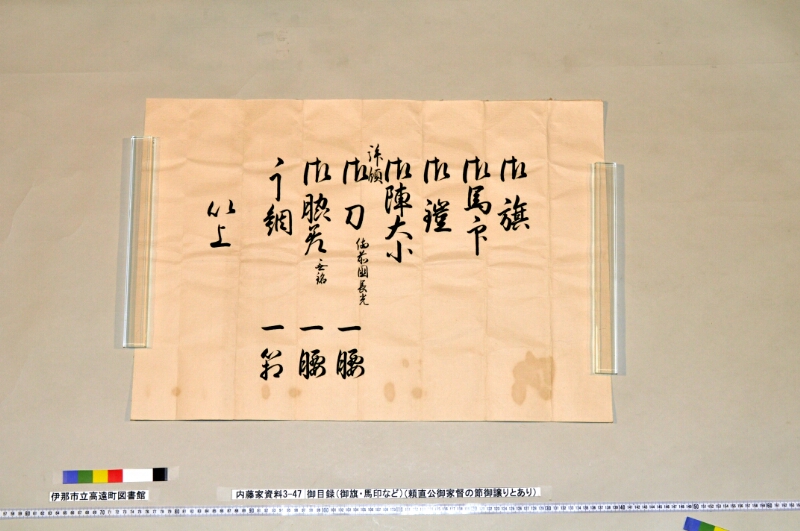 御旗
御馬印
御鎧
御陣太小
拝領
御刀 備前国長光 一腰
御脇差 無銘 一腰
干鯛 一箱
以上
伊那市立高遠町図書館
内藤家資料3-47 御目録(御旗・馬印など)(頼直公御家督の節御譲りとあり)